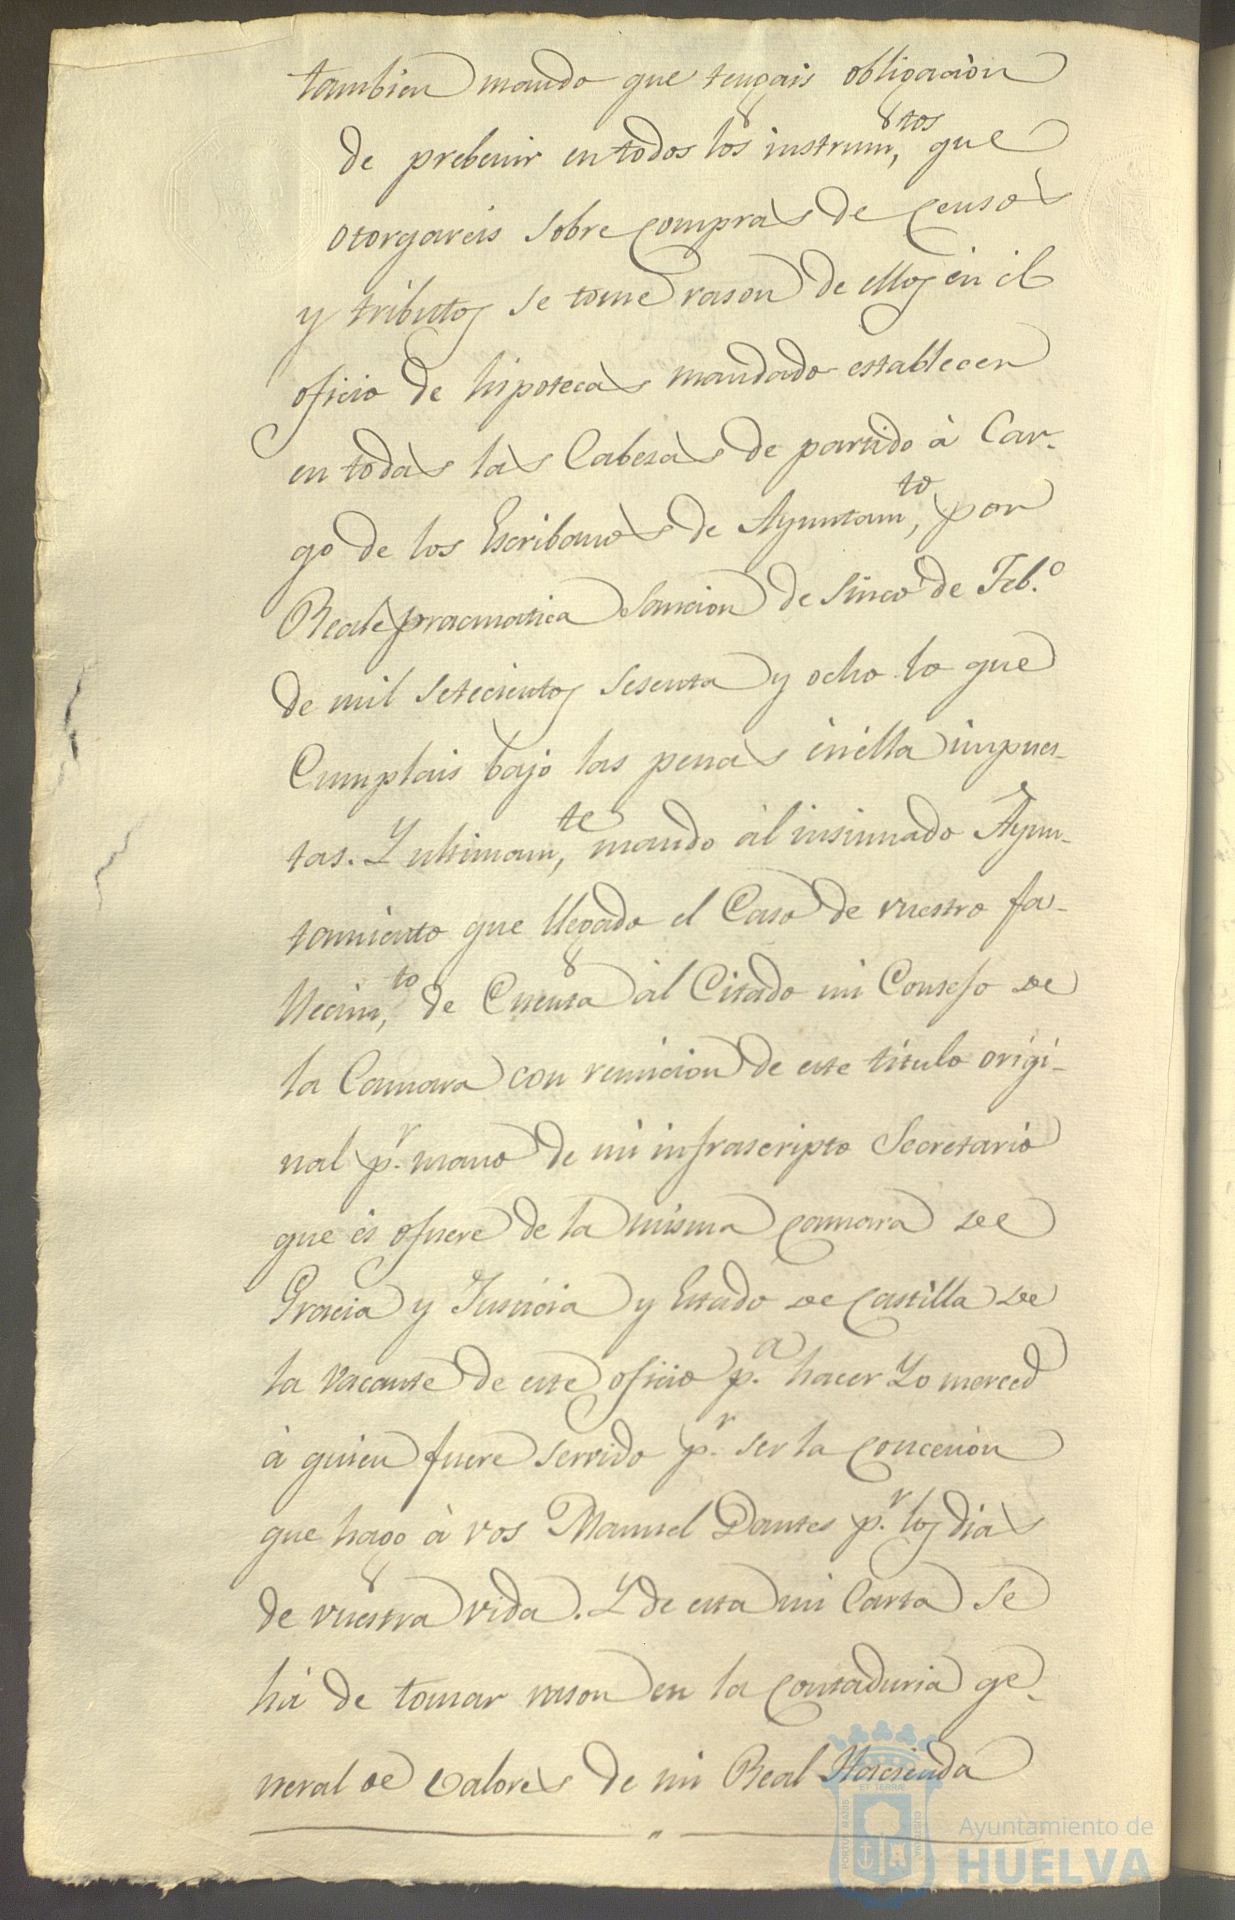 tambien mando que tengais obligacion
de prebenir en todos los instrum,tos que
otorgareis sobre compras de censos
y tributos se tome rason de ellos en el
oficio de hipotecas mandado establecer
en todas las Cabesas de partido à Car-
go de los Escribanos de Ayuntam,to por
Reale pracmatica sancion de sinco de Feb.o
de mil setecientos sesenta y ocho lo que
Cumplais bajo las penas en ella impues-
tas. Y ultimam,te mando al insinuado Ayun-
tamiento que llegado el Caso de vuestro fa-
llecim,to de Cuenta al Citado mi Consejo de
la Camara con remicion de este titulo origi-
nal p.r mano de mi infrascripto Secretario
que es ò fuere de la misma camara de
Gracia y Justicia y Estado de Castilla de
la vacante de este oficio p.a hacer Yo merced
à quien fuere servido p.r ser la concecion
que hago à vos Manuel Dantes p.r los dias
de vuestra vida. Y de esta mi Carta se
há de tomar rason en la contaduria ge-
neral de Valores de mi Real Hacienda
Ayuntamiento de
HUELVA